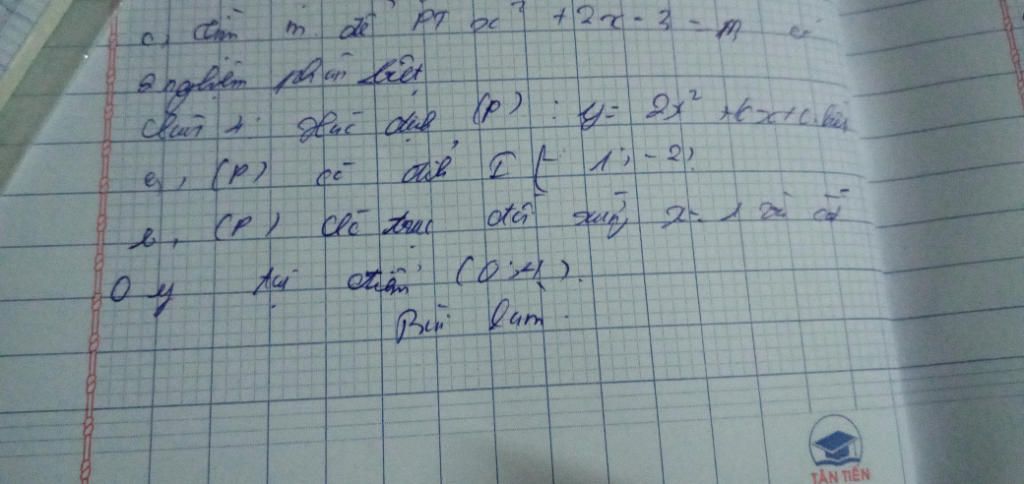 c, tìm m để PT x² + 2x - 3 = m có
2 nghiệm phân biệt
(P) : y = 2x² + bx + c biết
a, (P) có đỉnh I (- 1 ; - 2)
b, (P) có trục đối xứng x = 1 và cắt
Oy tại điểm (0;4).
Bài làm.
TÂN TIẾN